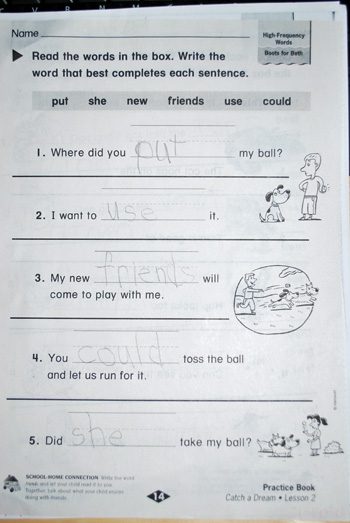 Name
High-Frequency
Words
Boots for Beth
Read the words in the box. Write the
word that best completes each sentence.
put she new friends use could
1. Where did you put my ball?
2. I want to use it.
3. My new friends will
come to play with me.
4. You could toss the ball
and let us run for it.
5. Did she take my ball?
SCHOOL-HOME CONNECTION Write the word
Together, talk about what your child enjoys
doing with friends.
14
Practice Book
Catch a Dream • Lesson 2